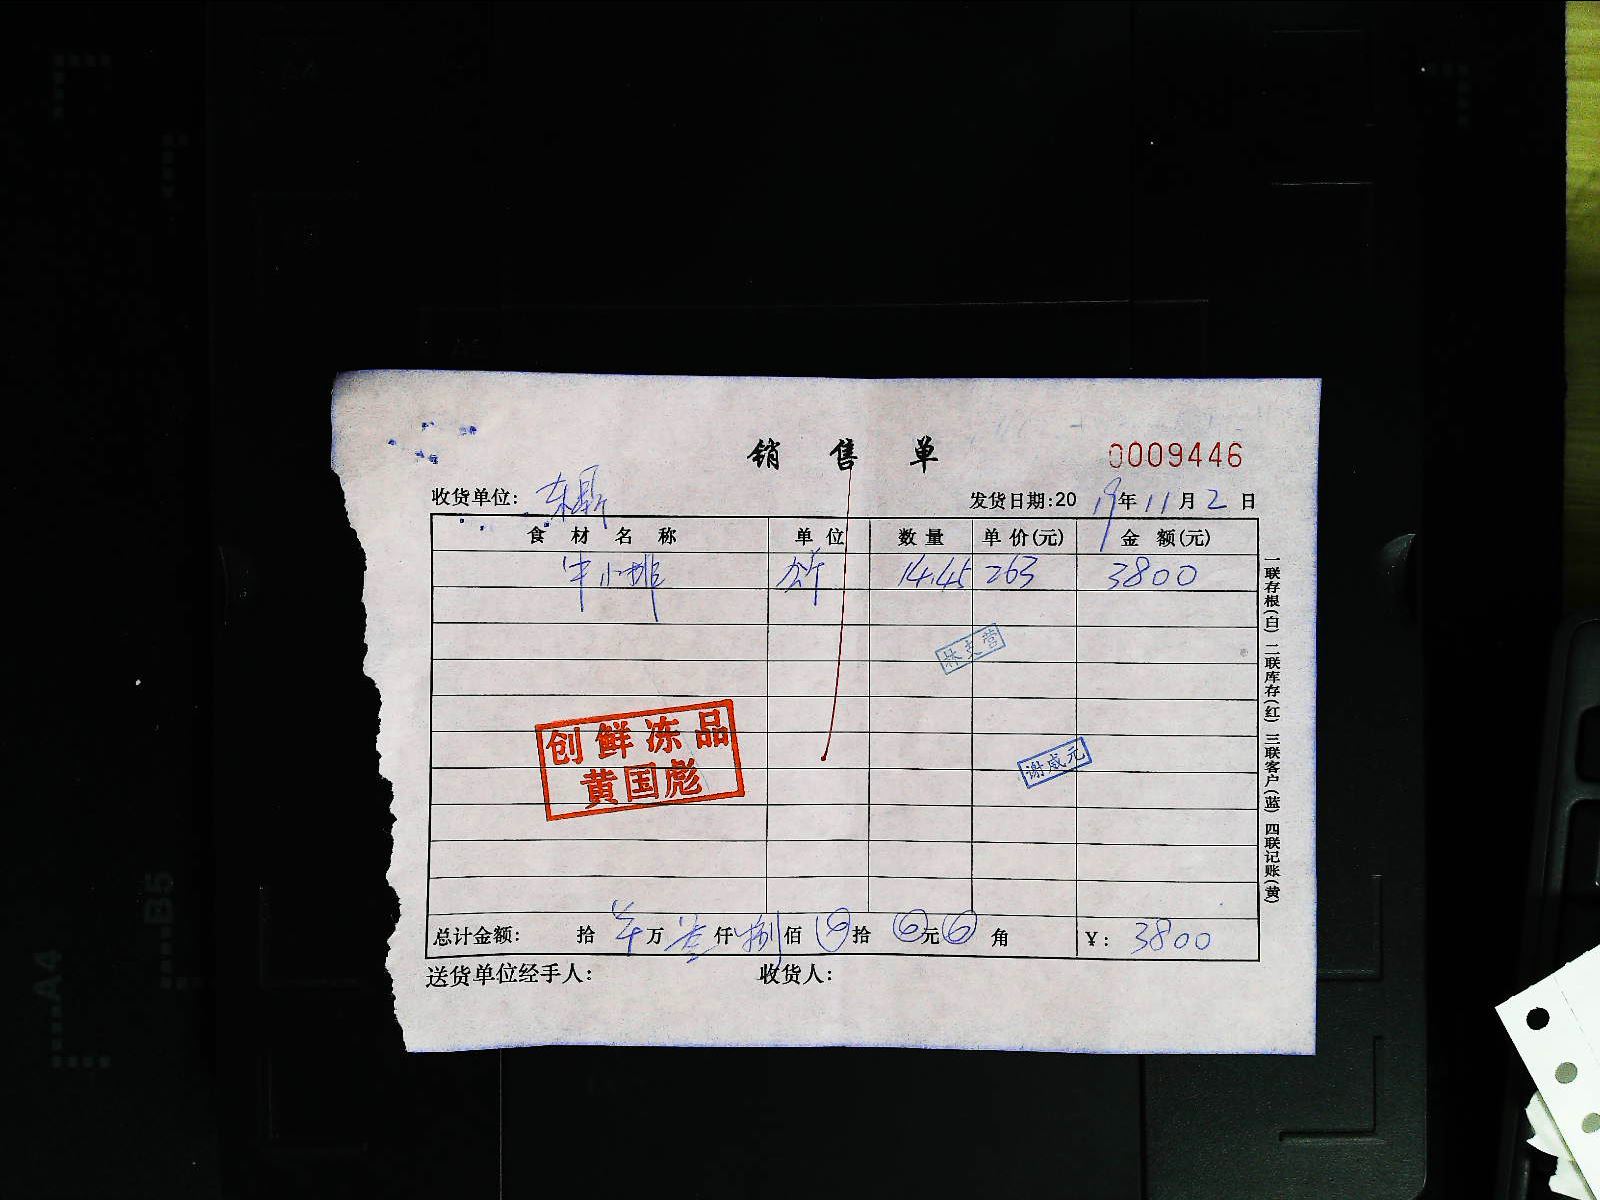 销售单
0009446
收货单位: 东鼎
发货日期:2019年11月2日
食材名称 单位 数量 单价(元) 金额(元)
牛小排 公斤 14.45 263 3800
林支营
创鲜冻品
黄国彪
谢咸元
总计金额: 拾 万 叁仟捌佰 0拾 0元0角 ¥: 3800
送货单位经手人: 收货人:
一联存根(白) 二联库存(红) 三联客户(蓝) 四联记账(黄)
A4
B5